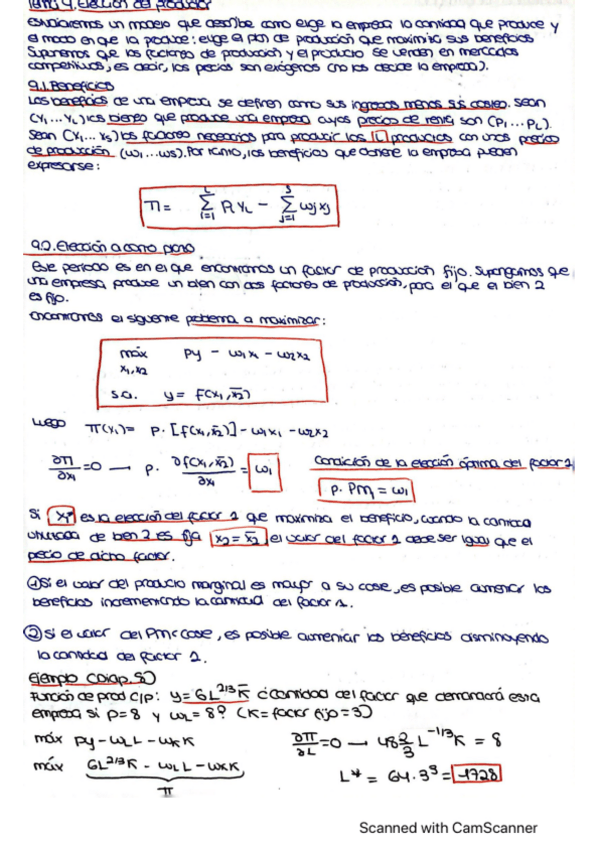 Tema 9. Elección del productor
Estudiaremos un modelo que describe como elige la empresa la cantidad que produce y
el modo en que la produce: elige el plan de producción que maximiza sus beneficios
Suponemos que los factores de producción y el producto se venden en mercados
competitivos, es decir, los precios son exógenos (no los decide la empresa).
9.1. Beneficios
Los beneficios de una empresa se definen como sus ingresos menos sus costes. Sean
(Y1 ... YL) los bienes que produce una empresa cuyos precios de venta son (P1 ... PL).
Sean (X1 ... Xs) los factores necesarios para producir los L productos con unos precios
de producción (w1 ... ws). Por tanto, los beneficios que obtiene la empresa pueden
expresarse:
π = Σ(i=1, L) Pi YL − Σ(j=1, s) wj xj
9.2. Elección a corto plazo
Este periodo es en el que encontramos un factor de producción fijo. Supongamos que
una empresa produce un bien con dos factores de producción, para el que el bien 2
es fijo.
Encontramos el siguiente problema a maximizar:
máx py − w1x1 − w2x2
x1,x2
s.a. y = f(x1, x̄2)
Luego π(Y1) = p · [f(x1, x̄2)] − w1x1 − w2x2
∂π/∂x1 = 0 → p · ∂f(x1, x̄2)/∂x1 = w1
Condición de la elección óptima del factor 1
p · Pm1 = w1
Si x1* es la elección del factor 1 que maximiza el beneficio, cuando la cantidad
utilizada de bien 2 es fija x2 = x̄2 el valor del factor 1 debe ser igual que el
precio de dicho factor.
① Si el valor del producto marginal es mayor a su coste, es posible aumentar los
beneficios incrementando la cantidad del factor 1.
② Si el valor del Pm < coste, es posible aumentar los beneficios disminuyendo
la cantidad del factor 1.
Ejemplo (Diap. 8)
Función de prod C/P: y = 6L^2/3 K̄ ¿Cantidad del factor que demandará esta
empresa si p=8 y wL = 8? (K = factor fijo = 3)
máx py − wLL − wKK
∂π/∂L = 0 → 48 2/3 L^-1/3 K = 8
máx 6L^2/3 K̄ − wLL − wKK
π
L* = 64 · 3³ = 1728
Scanned with CamScanner